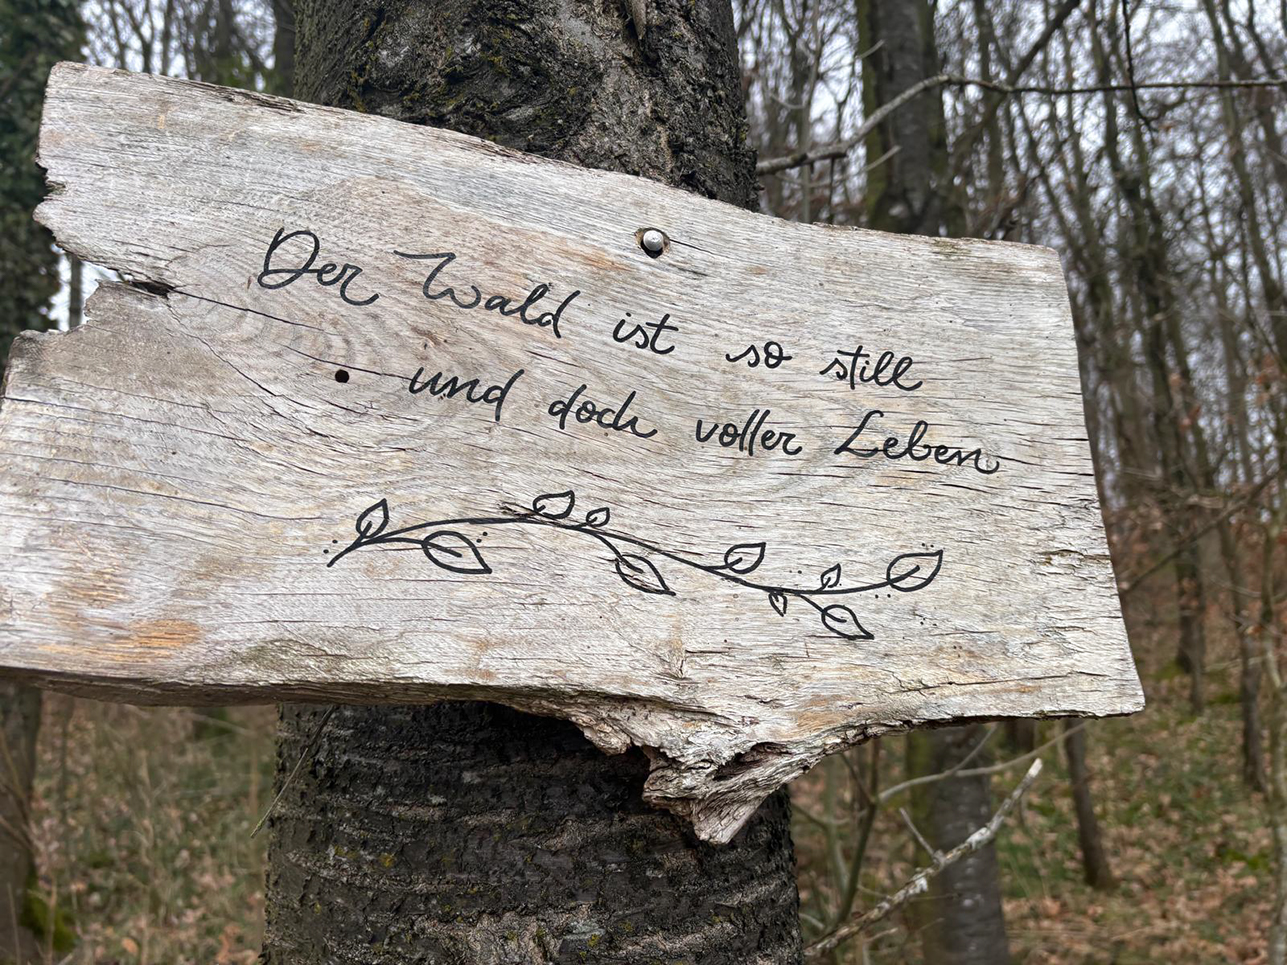 Der Wald ist so still
und doch voller Leben